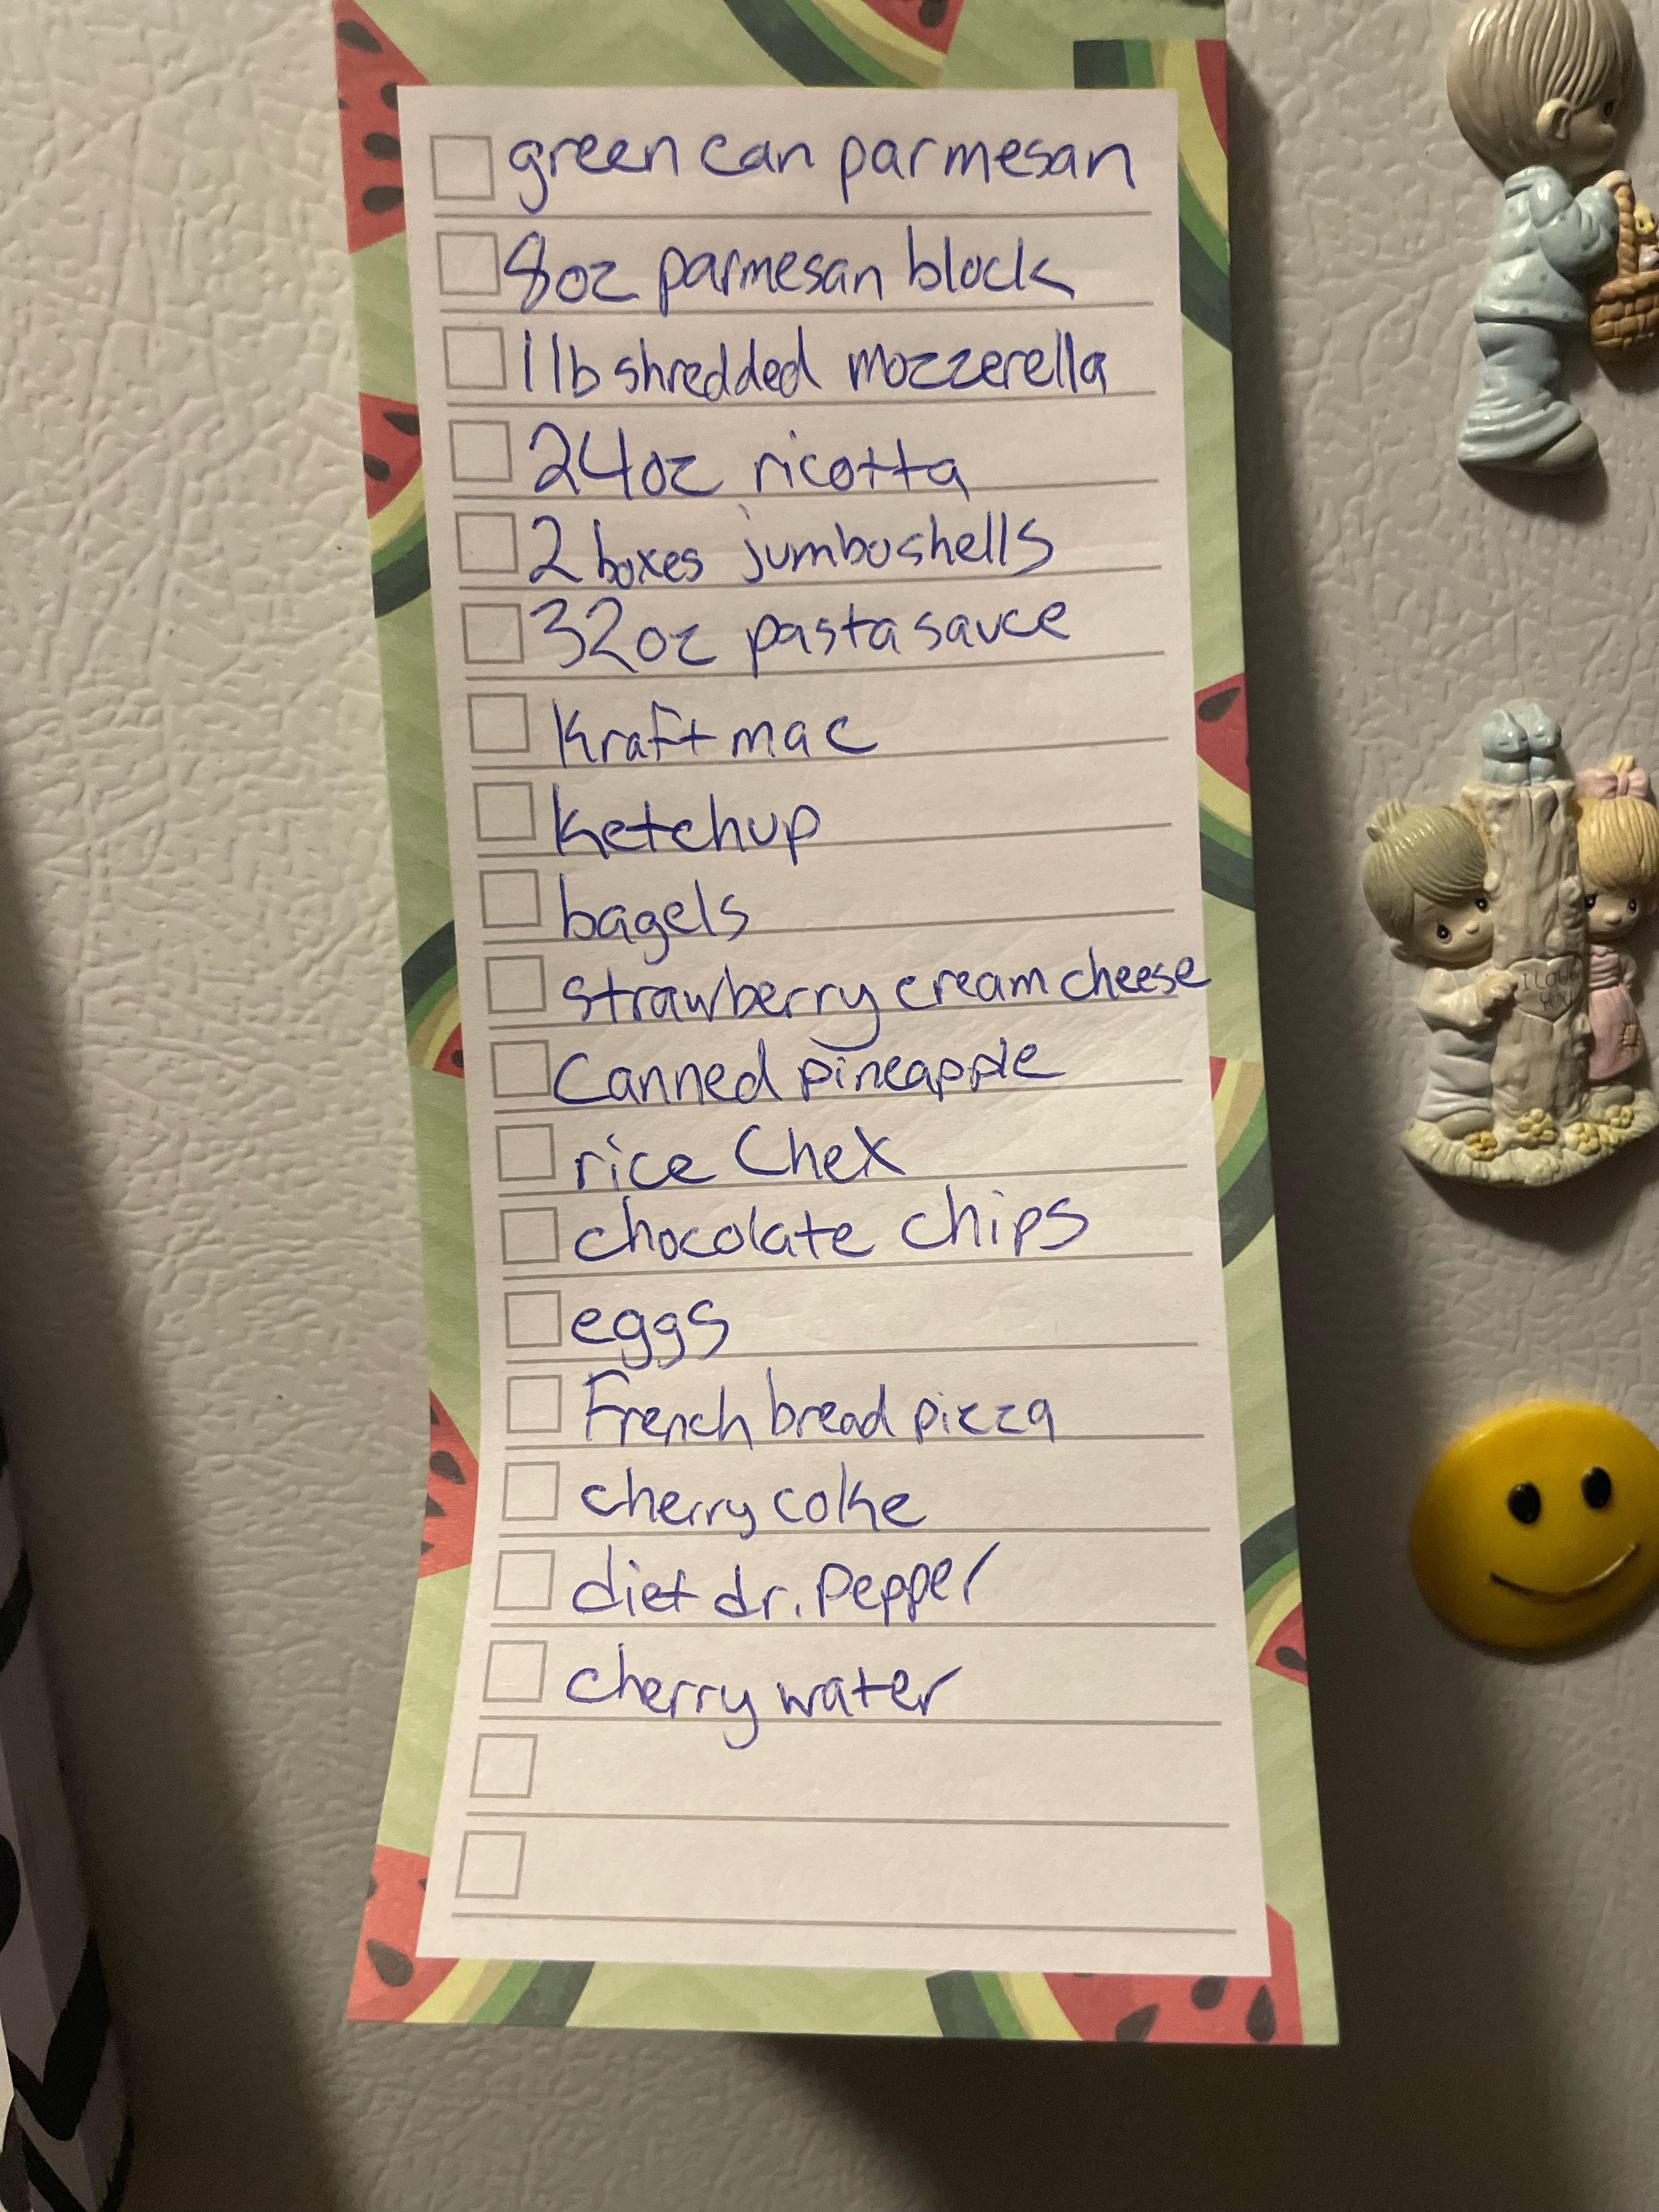 green can parmesan
8oz parmesan block
1 lb shredded mozzerella
24oz ricotta
2 boxes jumbo shells
32oz pasta sauce
Kraft mac
Ketchup
bagels
strawberry cream cheese
Canned pineapple
rice Chex
chocolate chips
eggs
French bread pizza
cherry coke
diet dr. Pepper
cherry water
I Love
You